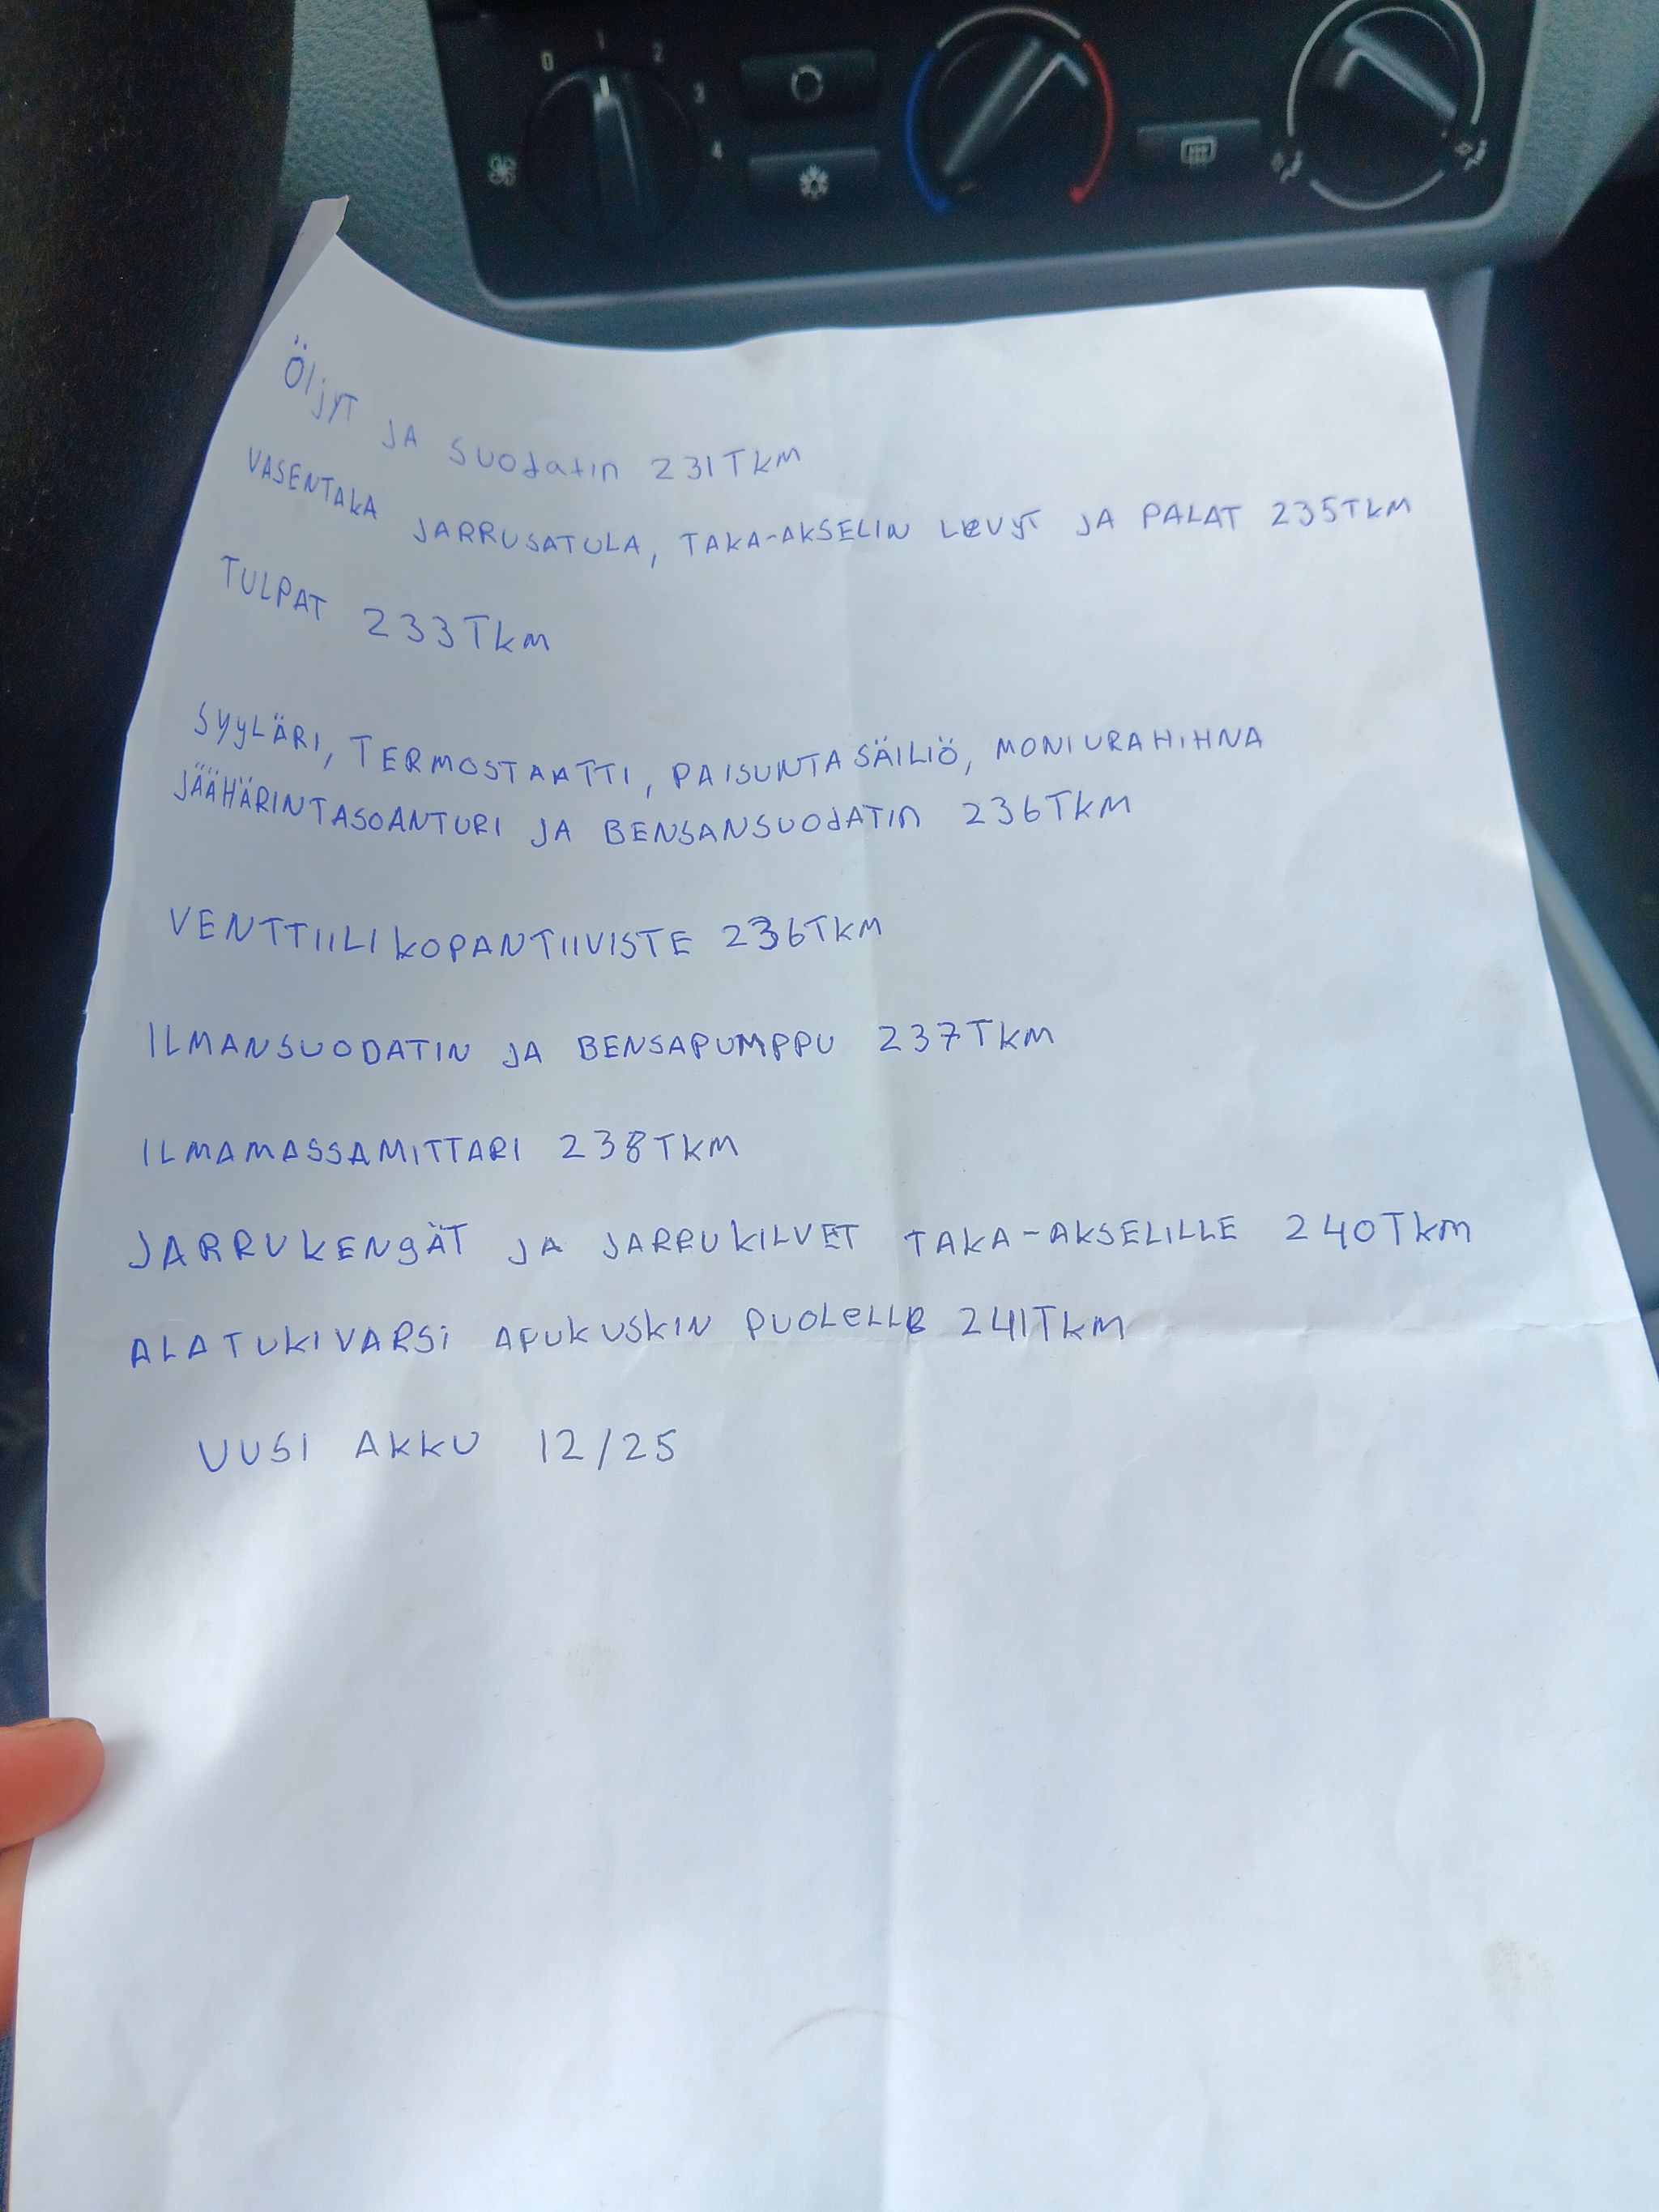 0 1 2 3 4
Öljyt JA suodatin 231Tkm
VASENTAKA JARRUSATULA, TAKA-AKSELIN LeVyT JA PALAT 235TKM
TULPAT 233Tkm
SYYLÄRI, TERMOSTAATTI, PAISUNTASÄILIÖ, MONIURAHIHNA
JÄÄHÄRINTASOANTURI JA BENSANSUODATIN 236TKM
VENTTIILIKOPANTIIVISTE 236TKM
ILMANSUODATIN JA BENSAPUMPPU 237TKM
ILMAMASSAMITTARI 238TKM
JARRUKENGÄT JA JARRUKILVET TAKA-AKSELILLE 240TKM
ALATUKIVARSI APUKUSKIN PUOLELLE 241TKM
UUSI AKKU 12/25